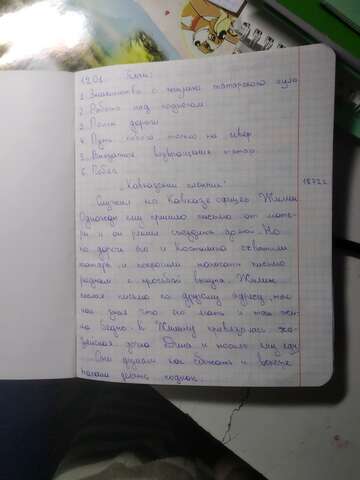 12.01. План:
1. Знакомство с жизнью татарского аула
2. Работа под подкопом.
3. Поиск дороги
4. Путь побега только на север
5. Внезапное возвращение татар.
6. Побег
"Кавказский пленник" 1872г.
Служил на Кавказе офицер Жилин
Однажды ему пришло письмо от мате-
ри и он решил съездить домой. Но
по дороге его и Костылина схватили
татары и попросили написать письмо
родным с просьбой выкупа. Жилин
послал письмо по другому адресу, так
как знал что его мать и так жи-
ла бедно. К Жилину привязалась хо-
зяйская дочка Дина и носила ему еду
Они думали как сбежать и
начали делать подкоп.